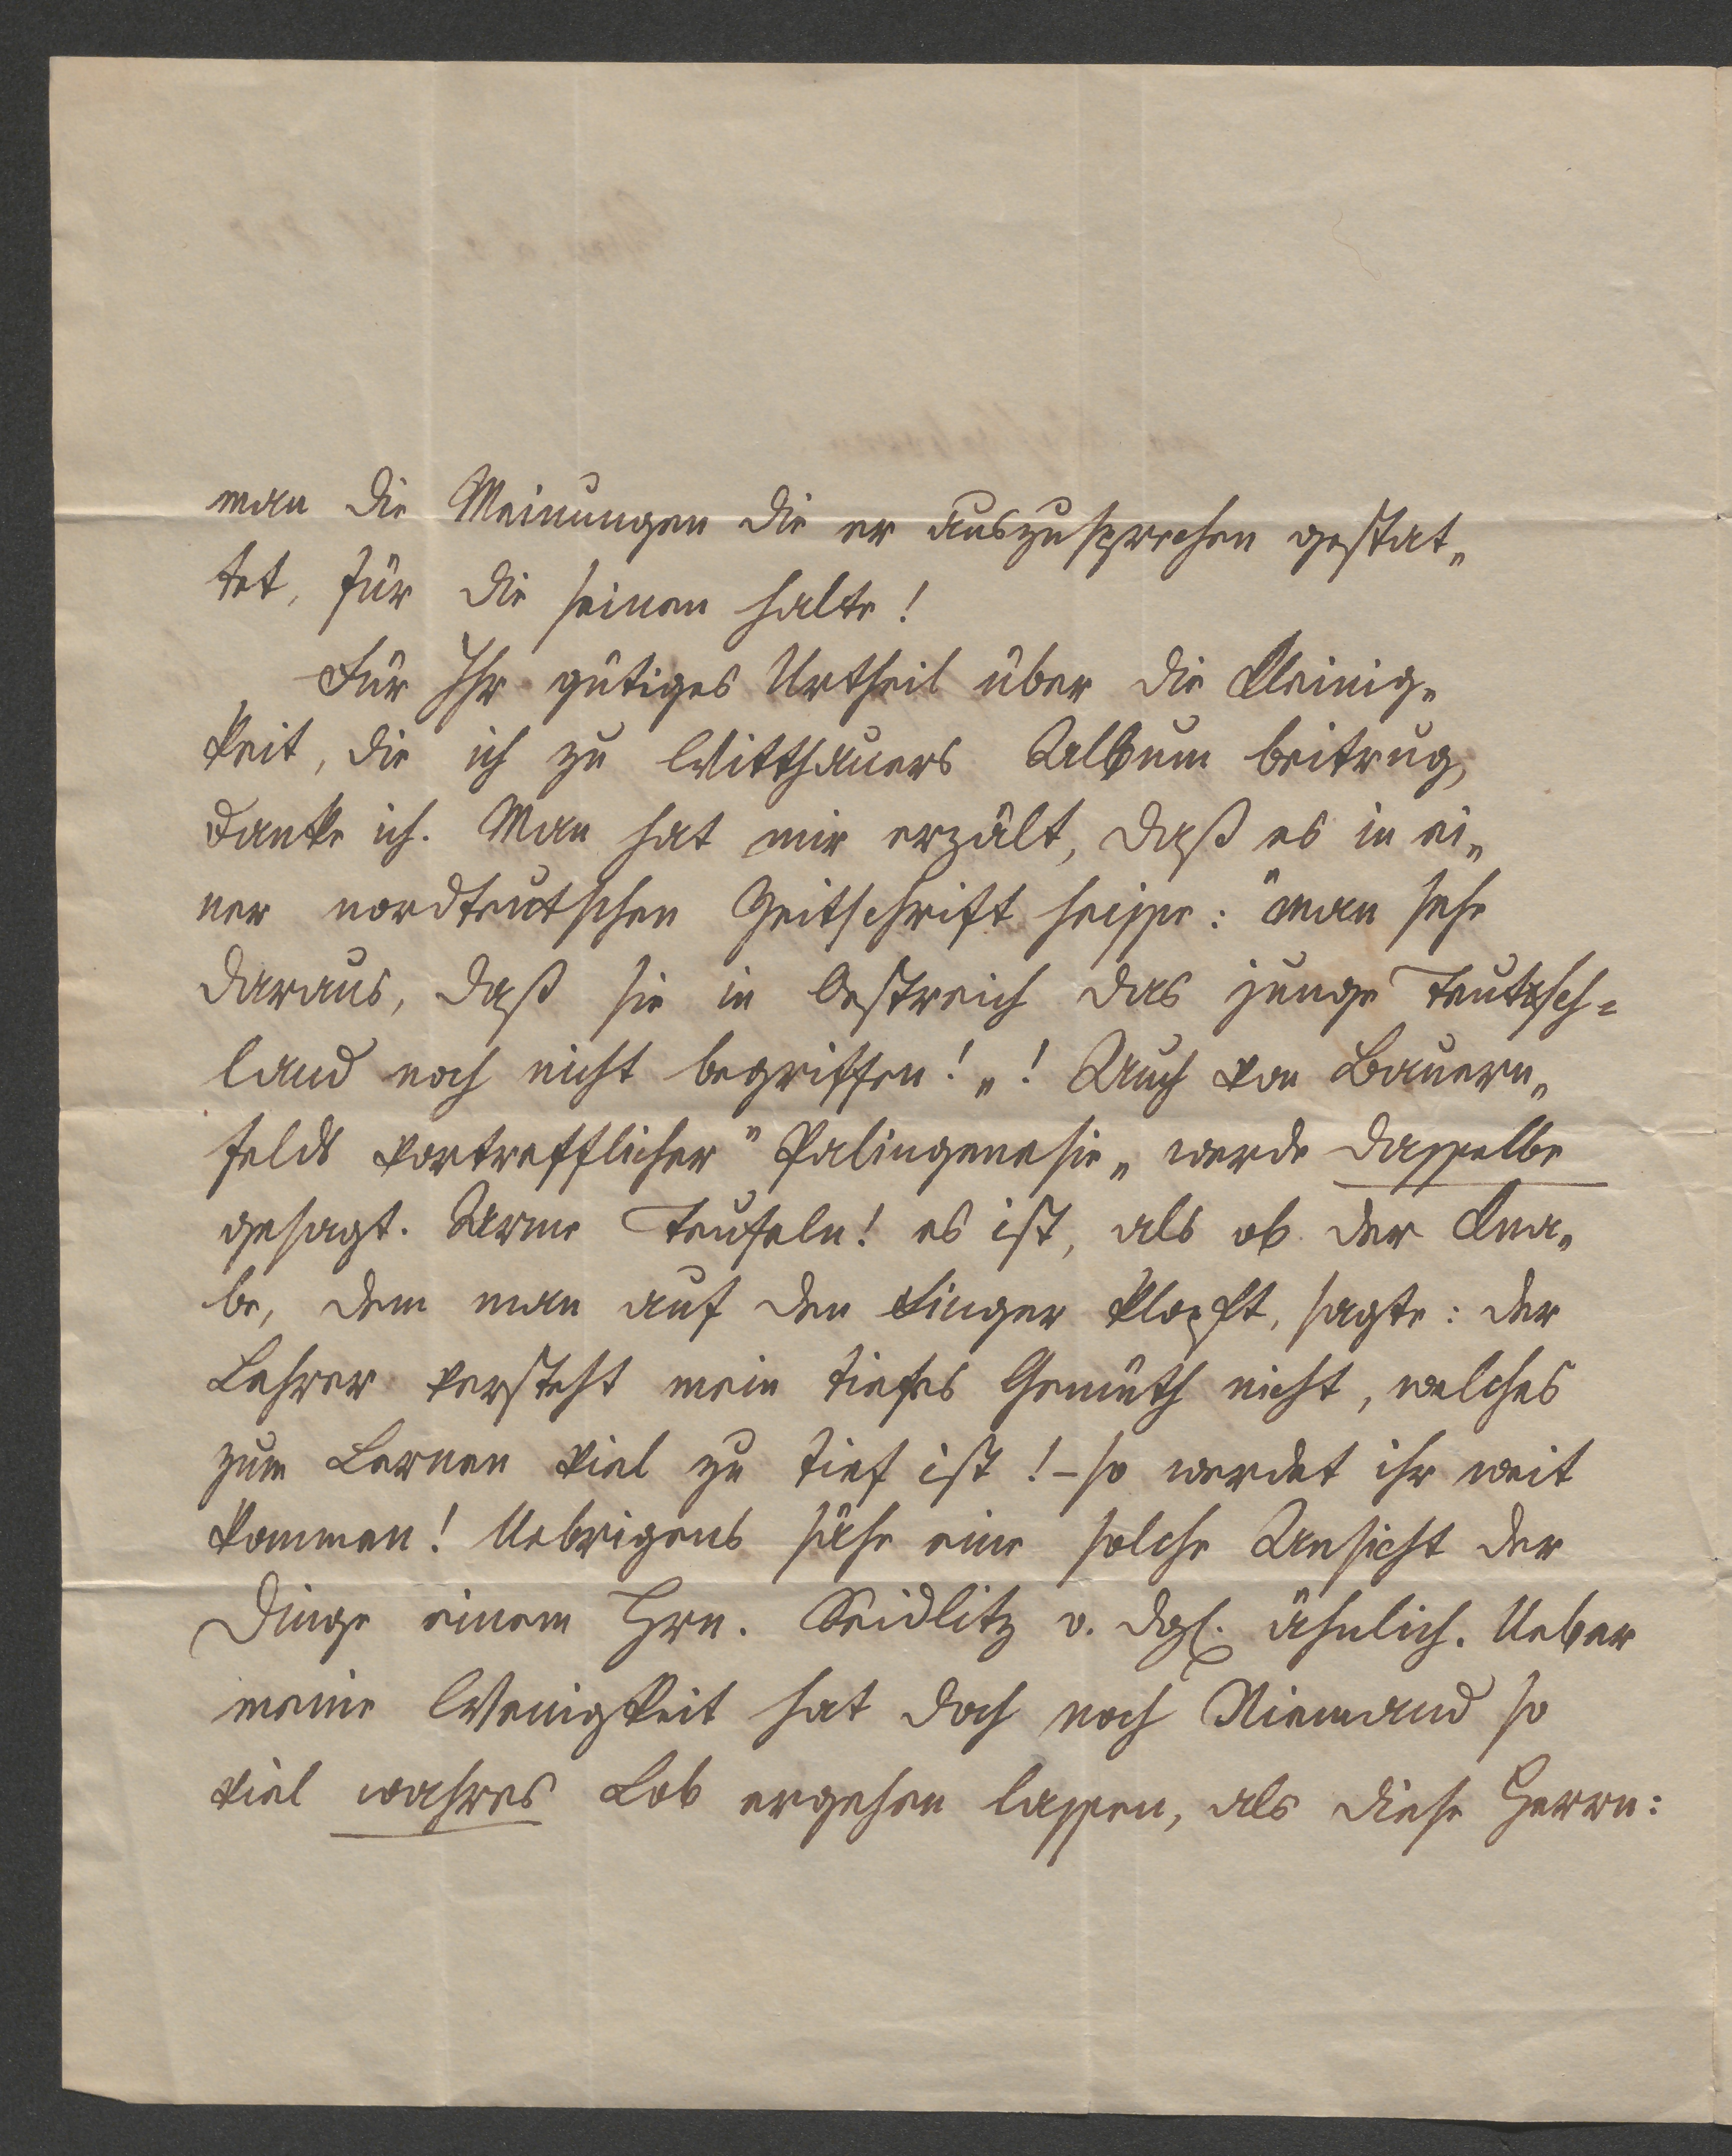 man die Meinungen die er auszusprechen gestat„
tet, für die seinen halte!
Für Ihr gütiges Urtheil über die Kleinig„
keit, die ich zu Witthauers Album beitrug,
danke ich. Man hat mir erzält, daß es in ei„
ner nordteutschen Zeitschrift heisse: "man sehe
daraus, daß sie in Oestreich das junge Teutsch=
land noch nicht begriffen!„! Auch von Bauern„
felds vortrefflicher "Palingenesie„ werde dasselbe
gesagt. Arme Teufeln! es ist, als ob der Kna„
be, dem man auf den Finger klopft, sagte: der
Lehrer versteht mein tiefes Gemüth nicht, welches
zum Lernen viel zu tief ist! – so werdet ihr weit
kommen! Uebrigens sähe eine solche Ansicht der
Dinge einem Hrn. Seidlitz o. dgl. ähnlich. Ueber
meine Wenigkeit hat doch noch Niemand so
viel wahres Lob ergehen lassen, als diese Herrn: